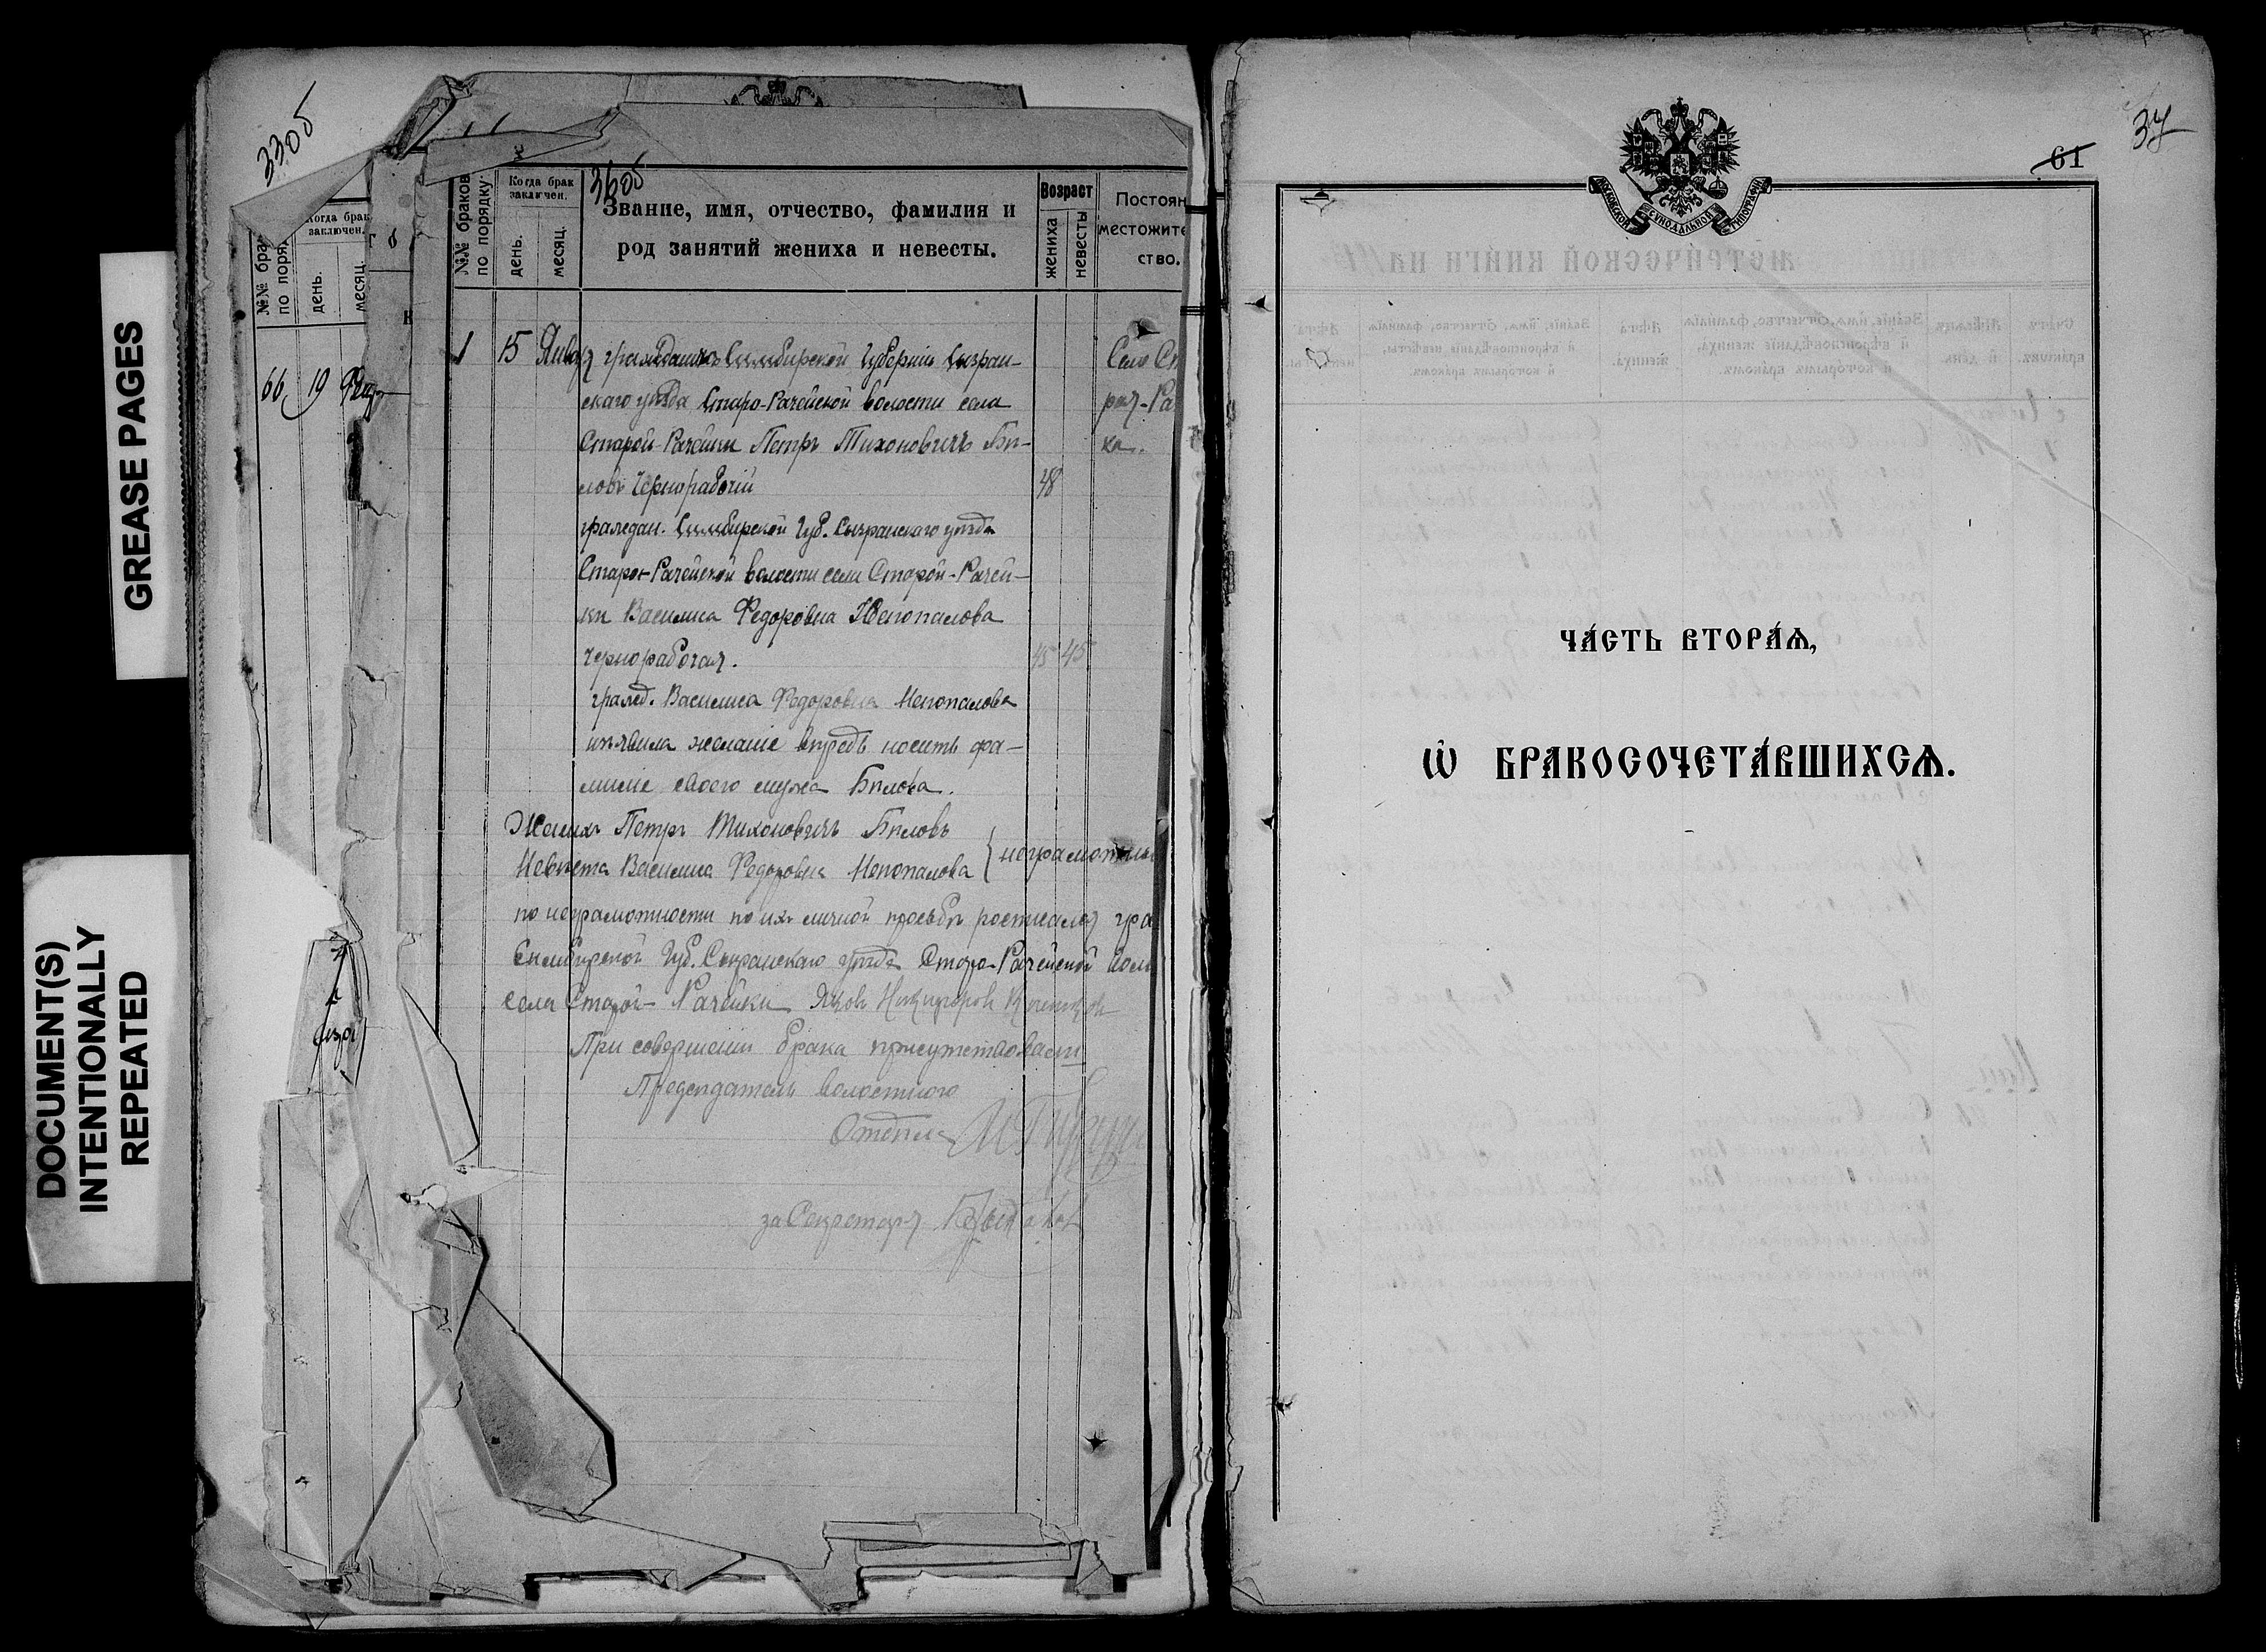 GREASE PAGES
DOCUMENT(S)
INTENTIONALLY
REPEATED
33об
36об
№№ бра
по поряд
Когда брак
заключен.
день.
месяц.
66 19 Февр
№№ браков
по порядку.
Когда брак
заключен.
день.
месяц.
Звание, имя, отчество, фамилия и
род занятий жениха и невесты.
Возраст
жениха
невесты
Постоян
местожите
ство.
1 15 Января гражданинъ Симбирской Губерніи Сызран-
скаго уѣзда Старо-Рачейской волости села
Старой-Рачейки Петръ Тихоновичъ Бѣ-
ловъ чернорабочій 48
Село Ст
рая-Ра
ка.
граждан. Симбирской Губ. Сызранскаго уѣзда
Старо-Рачейской волости села Старой-Рачей-
ки Василиса Федоровна Непопалова
чернорабочая. 45 45
гражд. Василиса Федоровна Непопалова
изъявила желаніе впредь носить фа-
миліе своего мужа Бѣлова.
Женихъ Петръ Тихоновичъ Бѣловъ
Невѣста Василиса Федоровна Непопалова
неграмотны
по неграмотности по их личной просьбѣ росписался гра
Симбирской Губ. Сызранскаго уѣзда Старо-Рачейской Воло
села Старой-Рачейки Яков Никифоров
При совершеніи брака присутствовали
Предсѣдатель волостного
Отдѣла
за Секретаря
37
61
МОСКОВСКОЙ СѴНОДАЛЬНОЙ ТИПОГРАФІИ
ЧА́СТЬ ВТОРА́Ѧ,
Ѡ҆ БРАКОСОЧЕТА́ВШИХСѦ.